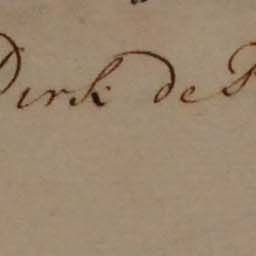 Dirk de